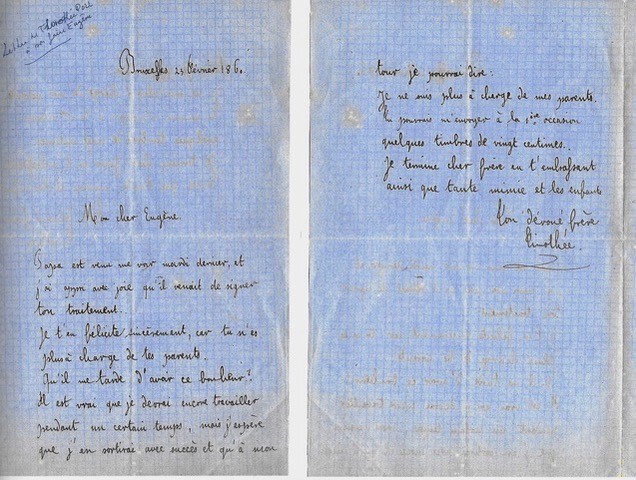 Lettre de Thimothée
à son frère Eugène
Bruxelles 23 Février 186.
Mon cher Eugène.
Papa est venu me voir mardi dernier, et
j'ai appris avec joie qu'il venait de signer
ton traitement.
Je t'en félicite sincèrement, car tu n'es
plus à charge de tes parents.
Qu'il me tarde d'avoir ce bonheur?
Il est vrai que je devrai encore travailler
pendant un certain temps, mais j'espère
que j'en sortirai avec succès et qu'à mon
tour je pourrai dire:
Je ne suis plus à charge de mes parents.
Tu pourrais m'envoyer à la 1ère occasion
quelques timbres de vingt centimes.
Je termine cher frère en t'embrassant
ainsi que tante mimie et les enfants
Ton dévoué frère
Timothée.